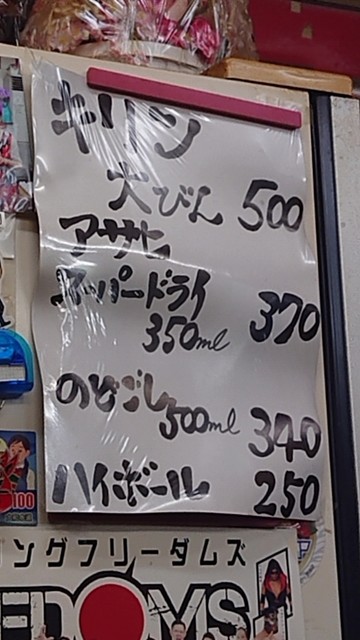 キリン
大びん 500
アサヒ
スーパードライ
350ml 370
のどごし
500ml 340
ハイボール 250
100
ングフリーダムズ
EDOMS